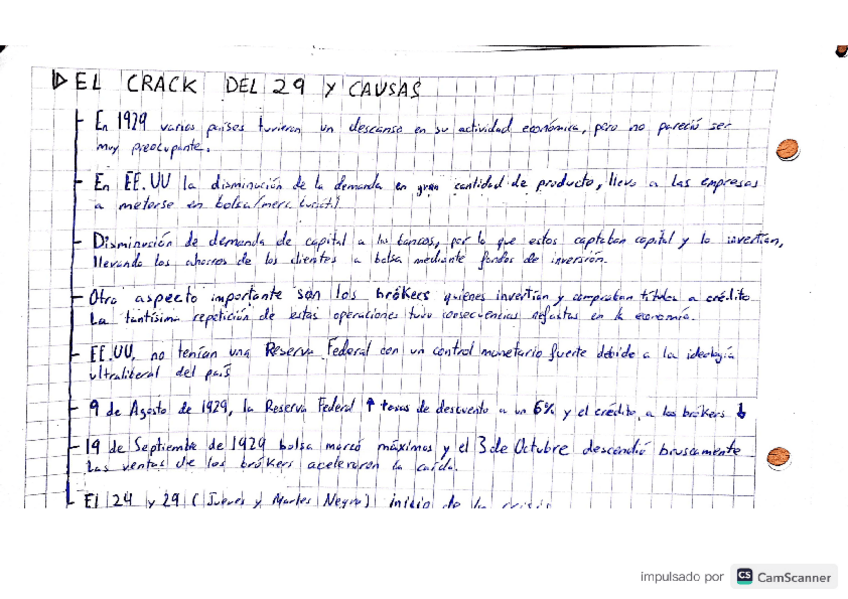 EL CRACK DEL 29 Y CAUSAS
- En 1929 varios países tuvieron un descanso en su actividad económica, pero no pareció ser
muy preocupante.
- En EE.UU la disminución de la demanda en gran cantidad de producto, llevo a las empresas
a meterse en bolsa/merc. bursátil
- Disminución de demanda de capital a los bancos, por lo que estos captaban capital y lo invertían,
llevando los ahorros de los clientes a bolsa mediante fondos de inversión.
- Otro aspecto importante son los brókers quienes invertían y compraban títulos a crédito
La tantísima repetición de estas operaciones tuvo consecuencias nefastas en la economía.
- EE.UU. no tenían una Reserva Federal con un control monetario fuerte debido a la ideología
ultraliberal del país
- 9 de Agosto de 1929, la Reserva Federal ↑ tasas de descuento a un 6% y el crédito a los brókers ↓
- 19 de Septiembre de 1929 bolsa marcó máximos y el 3 de Octubre descendió bruscamente
Las ventas de los brókers aceleraron la caída.
- El 24 y 29 (Jueves y Martes Negro) inicio de la crisis
impulsado por CS CamScanner